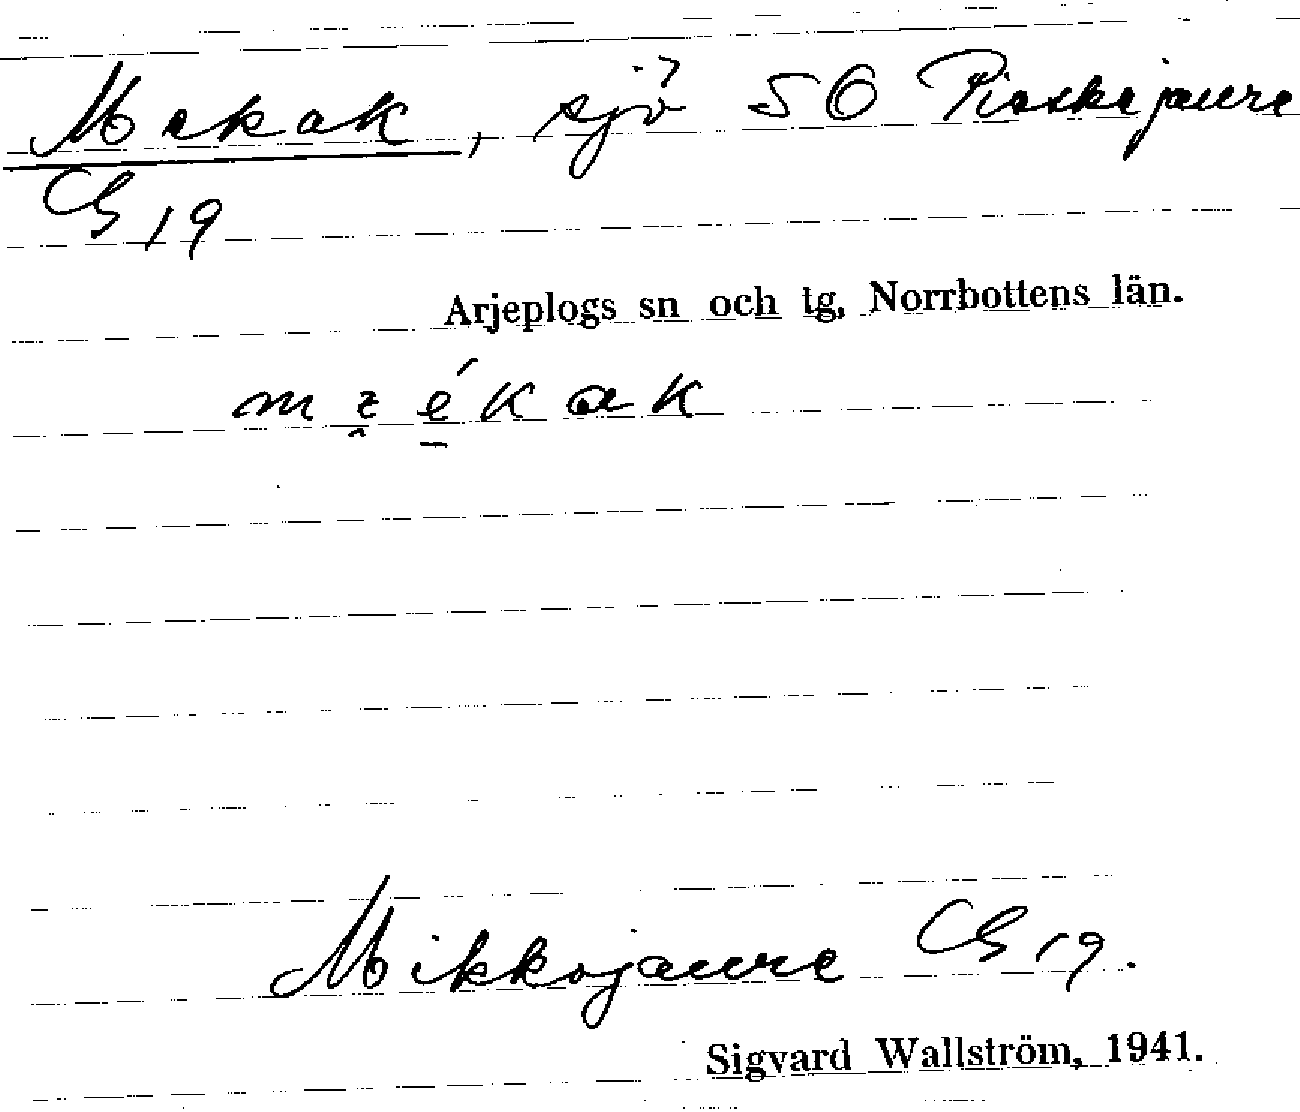 Mekak, sjö SO Pieskejaure
GS 19
Arjeplogs sn och tg, Norrbottens län.
Mikkojaure GS 19.
Sigvard Wallström, 1941.